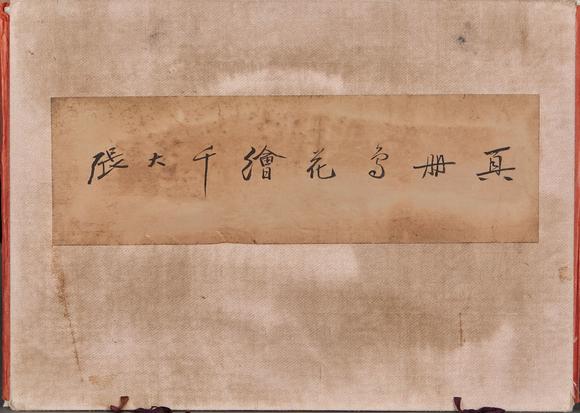 張大千繪花鳥冊真